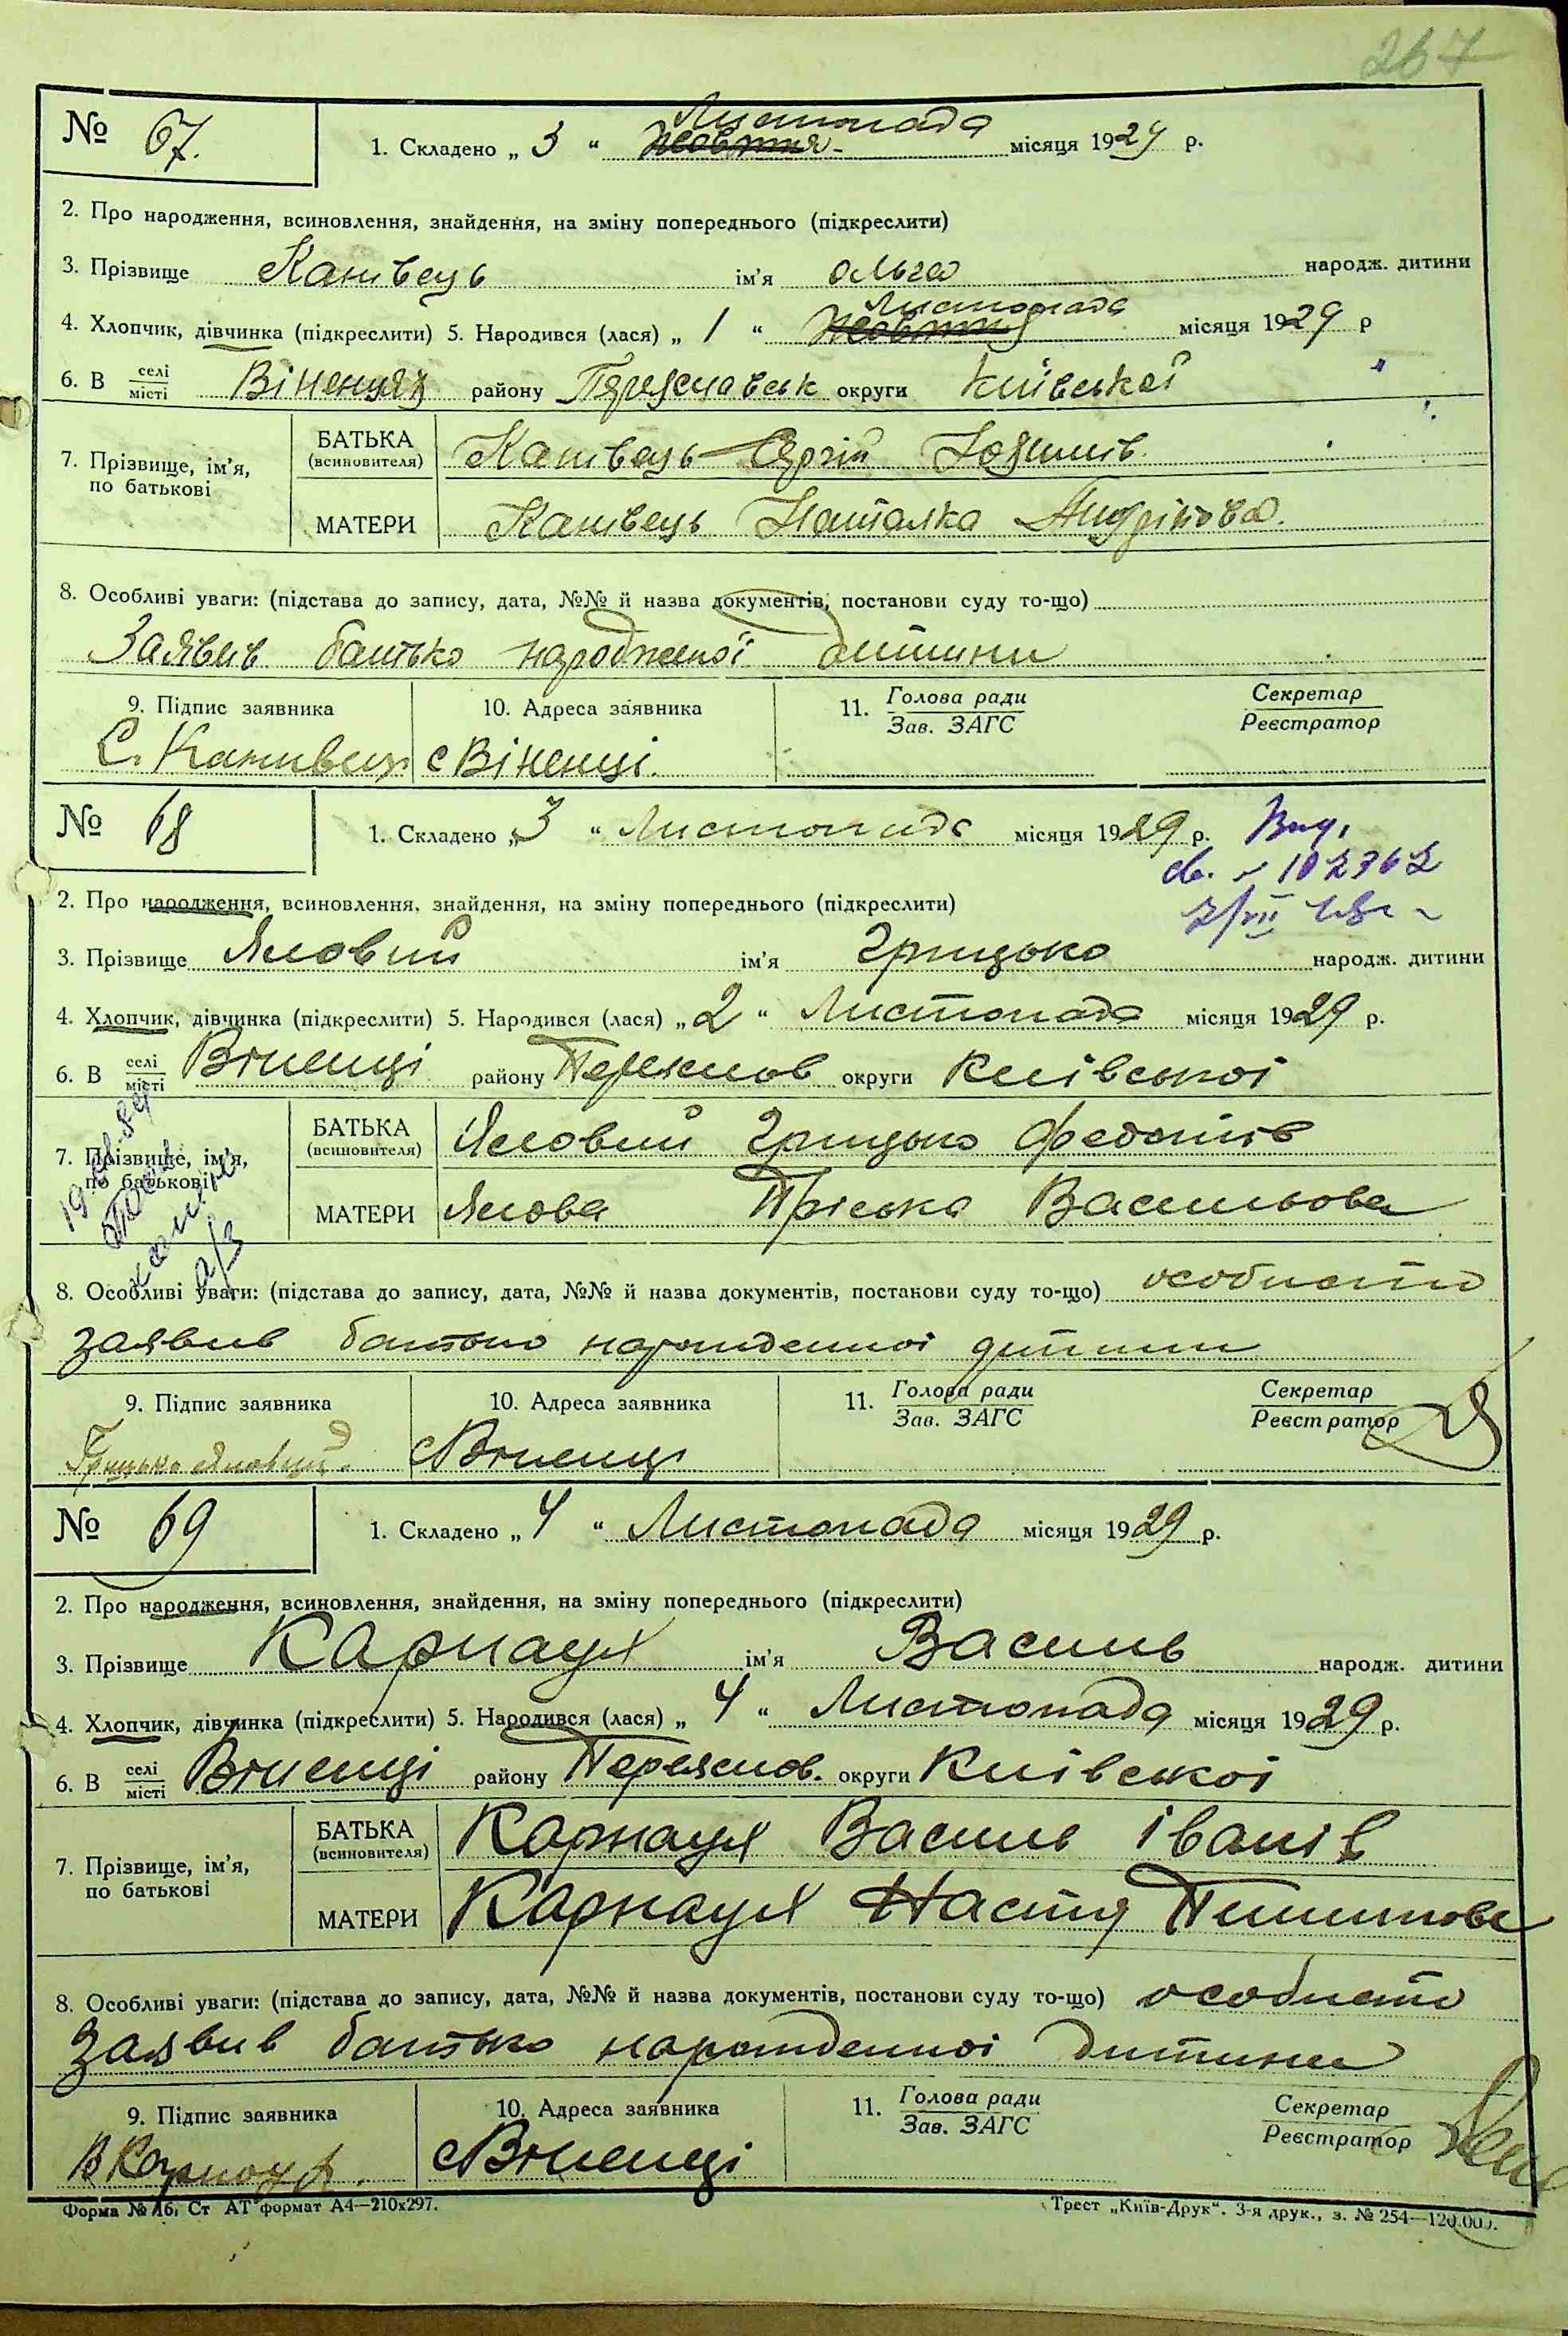 267
№ 67. 1. Складено „ 3 “ Листопада Жовтня місяця 1929 р.
2. Про народження, всиновлення, знайдення, на зміну попереднього (підкреслити)
3. Прізвище Канівець ім'я Ольга народж. дитини
4. Хлопчик, дівчинка (підкреслити) 5. Народився (лася) „ 1 “ Листопада Жовтня місяця 1929 р
6. В селі/місті Віненцях району Переяславськ округи Київської
7. Прізвище, ім'я, по батькові
БАТЬКА (всиновителя) Канівець Сергій
МАТЕРИ Канівець Наталка Андріїова.
8. Особливі уваги: (підстава до запису, дата, №№ й назва документів, постанови суду то-що)
Заявив батько народженої дитини
9. Підпис заявника 10. Адреса заявника 11. Голова ради/Зав. ЗАГС Секретар/Реєстратор
С. Канивець с Віненці.
№ 68 1. Складено „3 “ Листопада місяця 1929 р. Вид.
св. 102362
2. Про народження, всиновлення, знайдення, на зміну попереднього (підкреслити)
3. Прізвище Яловий ім'я Грицько народж. дитини
4. Хлопчик, дівчинка (підкреслити) 5. Народився (лася) „2 “ Листопада місяця 1929 р.
6. В селі/місті Віненці району Переяслов округи Київської
7. Прізвище, ім'я, по батькові
БАТЬКА (всиновителя) Яловий Грицько Федотів
МАТЕРИ Ялова Пріська Васильова
8. Особливі уваги: (підстава до запису, дата, №№ й назва документів, постанови суду то-що) особисто
заявив батько народженної дитини
9. Підпис заявника 10. Адреса заявника 11. Голова ради/Зав. ЗАГС Секретар/Реєстратор
Грицько Яловий. с Віненці
№ 69 1. Складено „ 4 “ Листопада місяця 1929 р.
2. Про народження, всиновлення, знайдення, на зміну попереднього (підкреслити)
3. Прізвище Карнаух ім'я Василь народж. дитини
4. Хлопчик, дівчинка (підкреслити) 5. Народився (лася) „ 4 “ Листопада місяця 1929 р.
6. В селі/місті Віненці району Переяслов. округи Київської
7. Прізвище, ім'я, по батькові
БАТЬКА (всиновителя) Карнаух Василь Іванів
МАТЕРИ Карнаух Настя Пилипова
8. Особливі уваги: (підстава до запису, дата, №№ й назва документів, постанови суду то-що) особисто
заявив батько народженної дитини
9. Підпис заявника 10. Адреса заявника 11. Голова ради/Зав. ЗАГС Секретар/Реєстратор
В Карнаух. с Віненці
Форма № 16, Ст АТ формат А4—210х297. Трест „Київ-Друк“. 3-я друк., з. № 254—120.000.